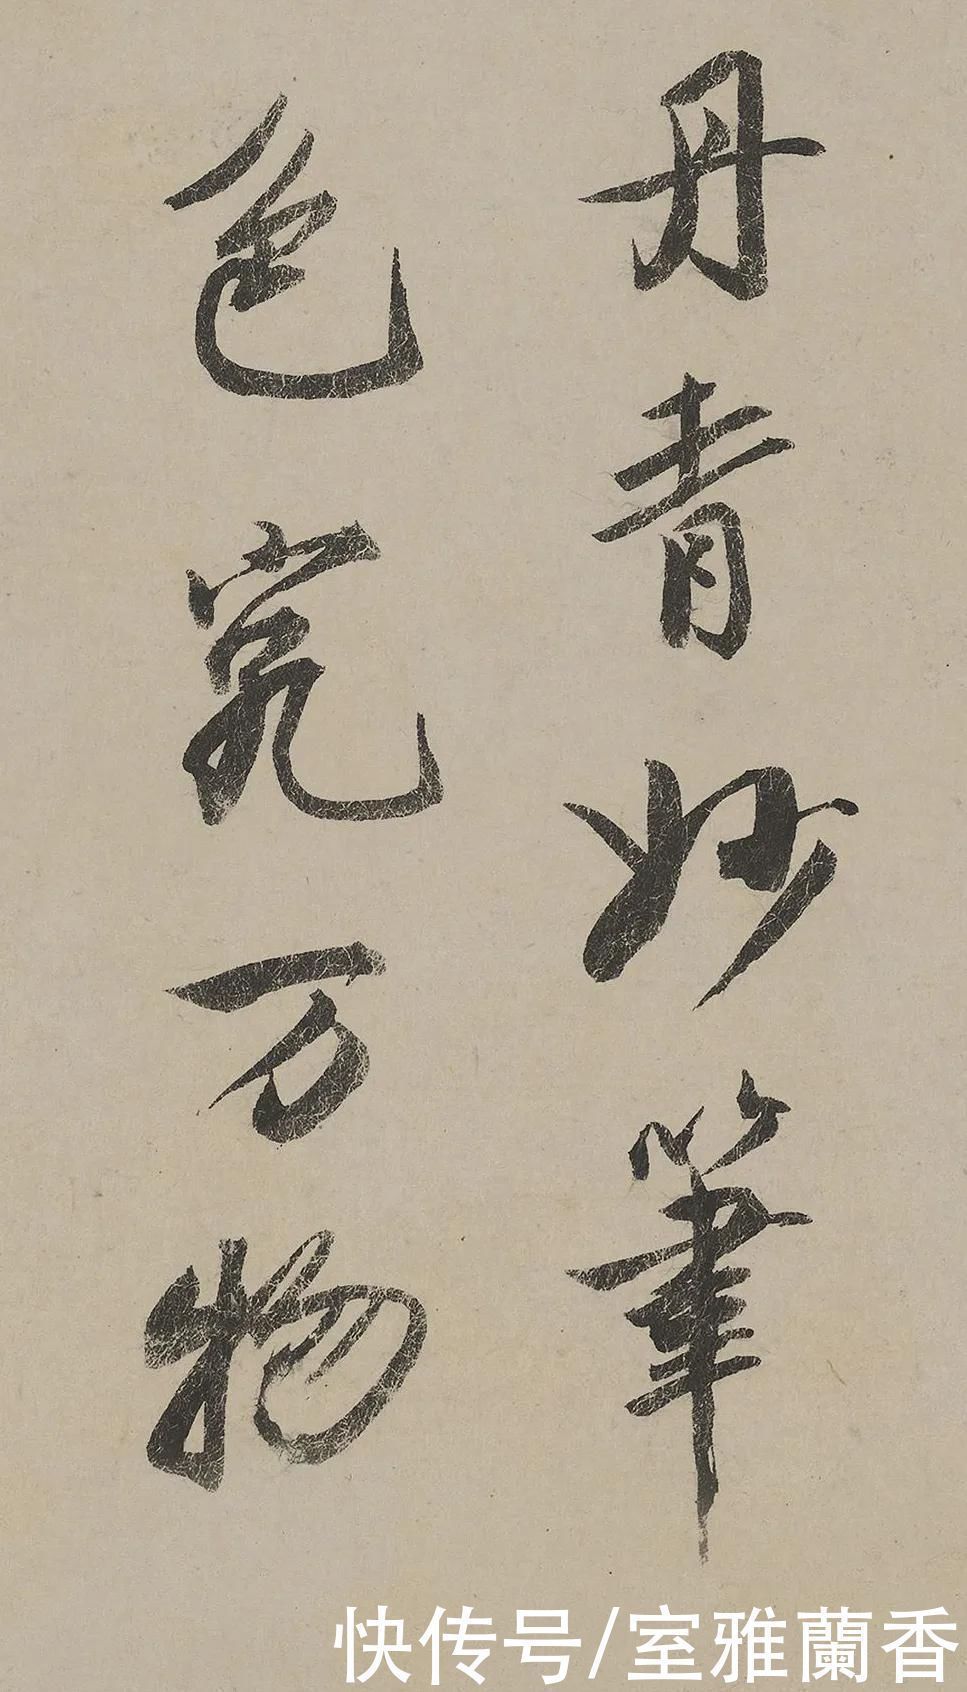 丹青妙筆
色究万物
快传号/室雅蘭香